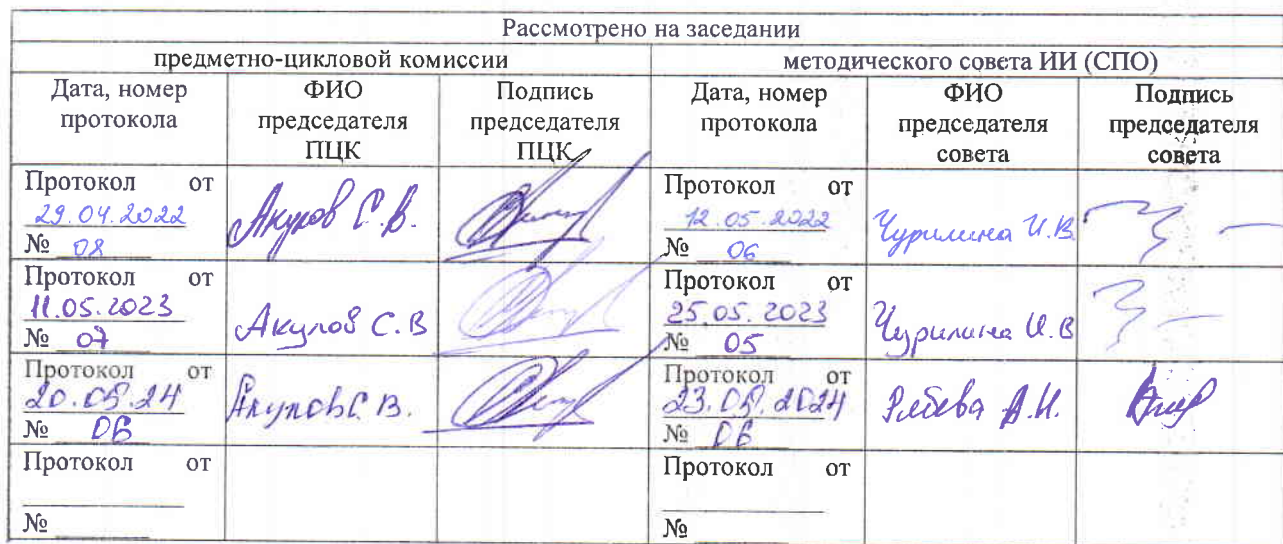 Рассмотрено на заседании
предметно-цикловой комиссии
методического совета ИИ (СПО)
Дата, номер протокола
ФИО председателя ПЦК
Подпись председателя ПЦК
Дата, номер протокола
ФИО председателя совета
Подпись председателя совета
Протокол от
29.04.2022
№ 08
Акулов С.В.
Протокол от
12.05.2022
№ 06
Чурилина И.В.
Протокол от
11.05.2023
№ 07
Акулов С.В
Протокол от
25.05.2023
№ 05
Чурилина И.В
Протокол от
20.05.24
№ 06
Акулов С.В.
Протокол от
23.05.2024
№ 06
Протокол от
№
Протокол от
№